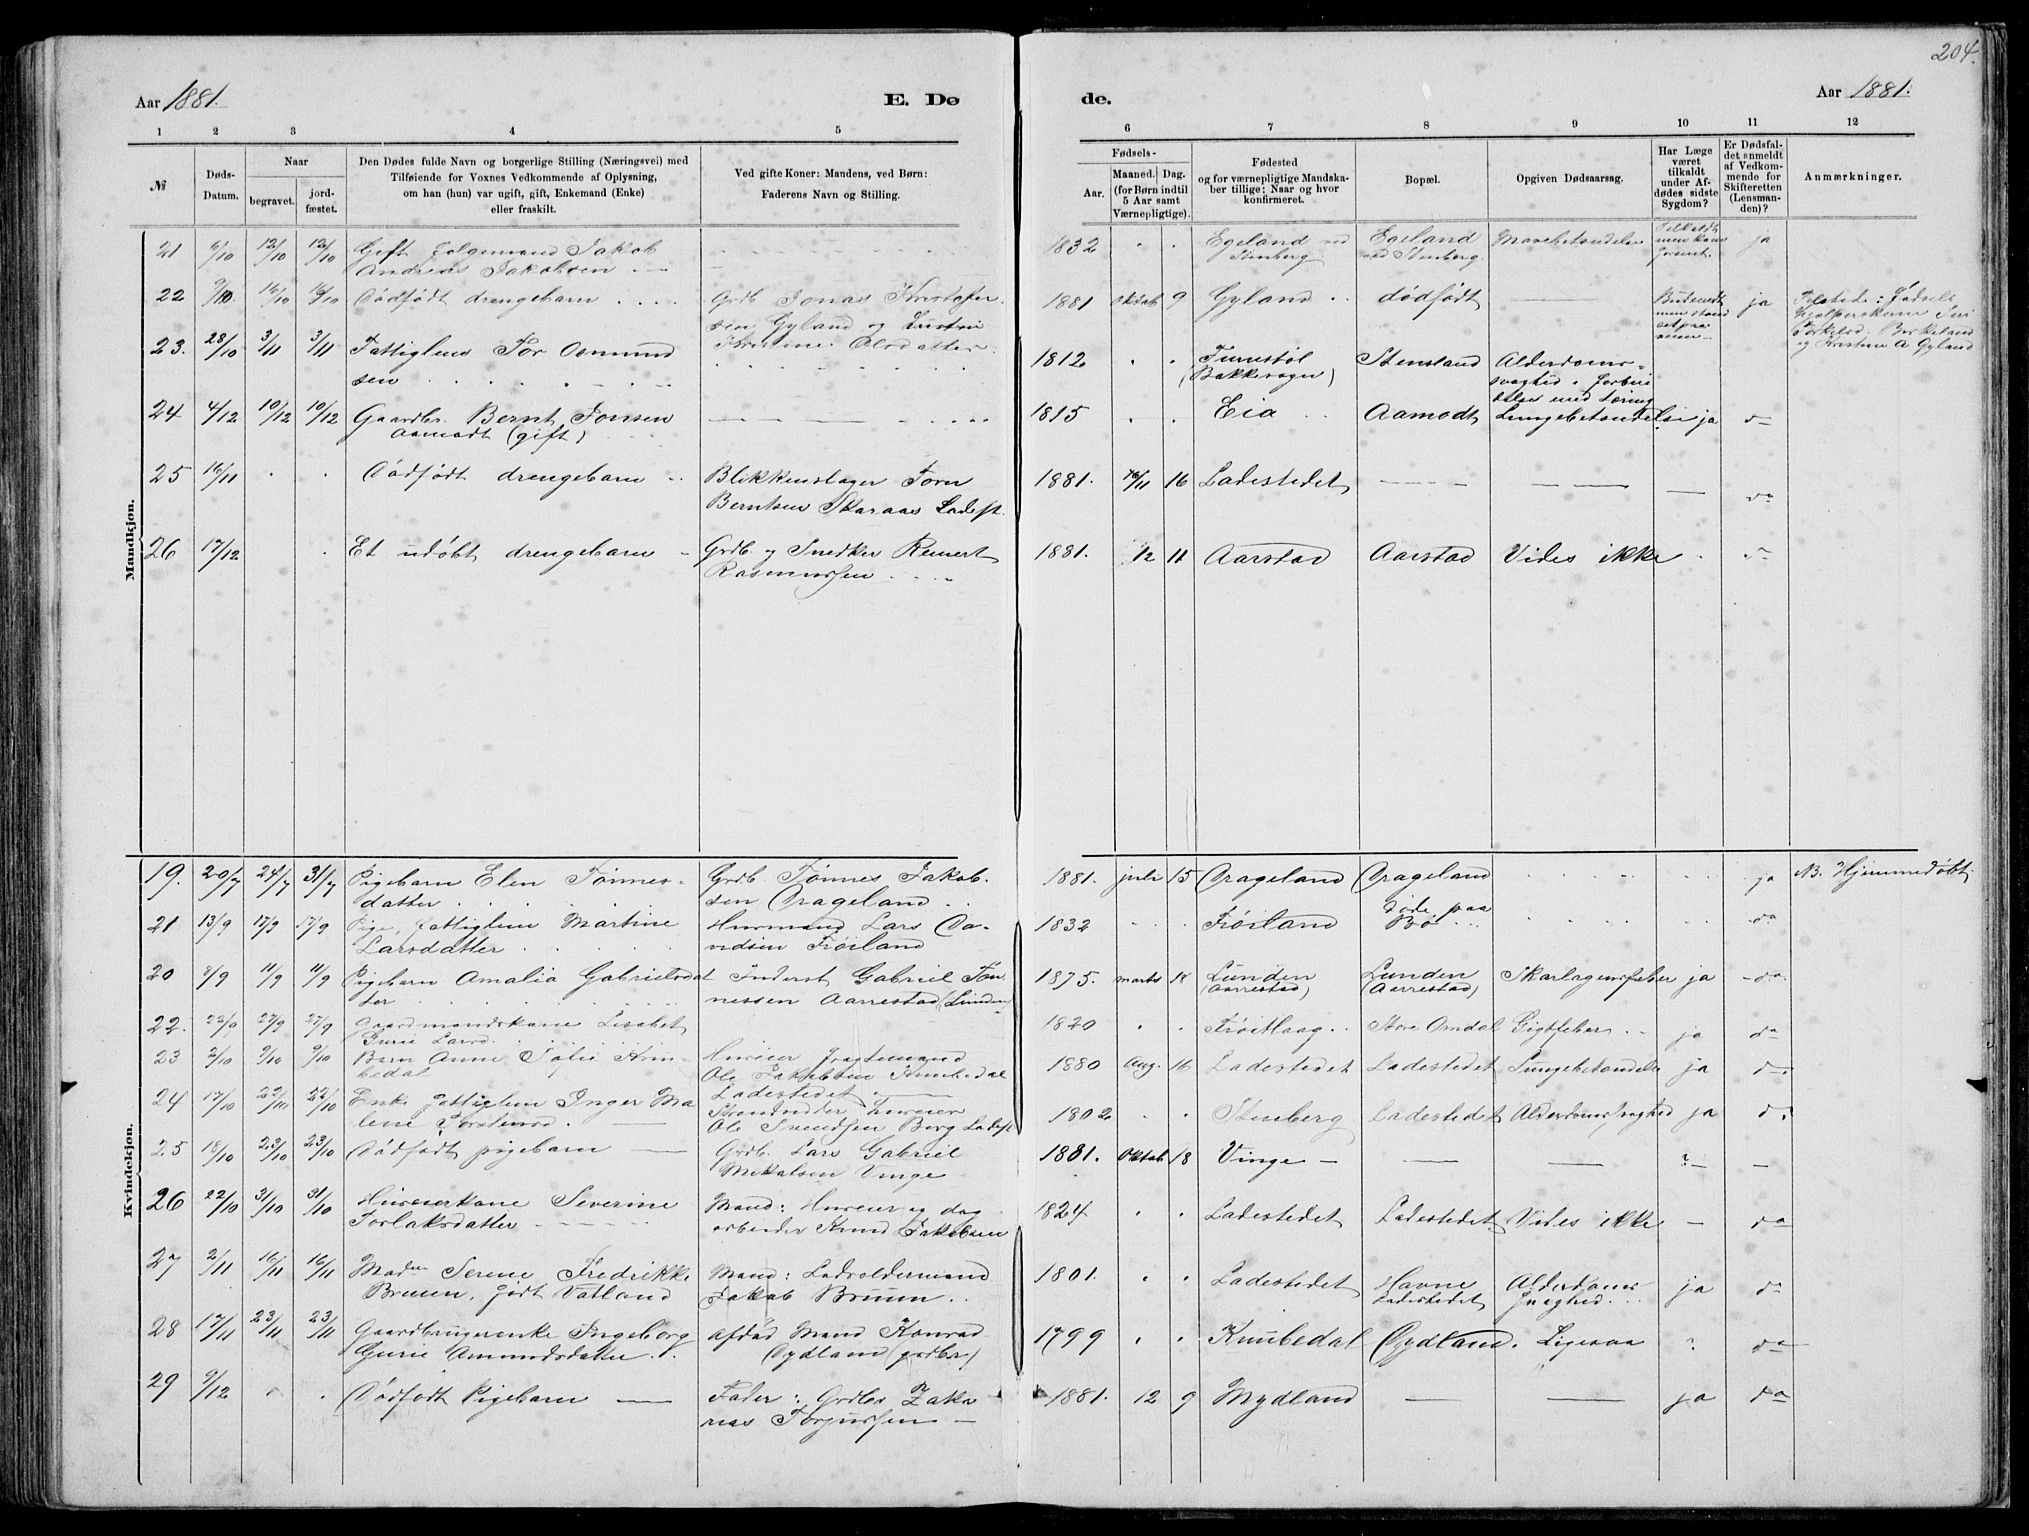 204.
Aar 1881. E. Dø
de. Aar 1881.
1 2 3 4 5
6 7 8 9 10 11 12
№
Døds-
Datum.
Naar
begravet.
jord-
fæstet.
Den Dødes fulde Navn og borgerlige Stilling (Næringsvei) med
Tilføiende for Voxnes Vedkommende af Oplysning,
om han (hun) var ugift, gift, Enkemand (Enke)
eller fraskilt.
Ved gifte Koner: Mandens, ved Børn:
Faderens Navn og Stilling.
Fødsels-
Aar.
Maaned. Dag.
(for Børn indtil
5 Aar samt
Værnepligtige).
Fødested
og for værnepligtige Mandska-
ber tillige: Naar og hvor
konfirmeret.
Bopæl.
Opgiven Dødsaarsag.
Har Læge
været
tilkaldt
under Af-
dødes sidste
Sygdom?
Er Dødsfal-
det anmeldt
af Vedkom-
mende for
Skifteretten
(Lensman-
den)?
Anmærkninger.
Mandkjøn.
21 6/10 12/10 12/10 Gift Folgemand Jakob
Andreas Jakobsen
1832 Egeland ved
Stenberg
Egeland
ved Stenberg
Mavebetændelse
Tilkaldt
men kom
ja
22 9/10 16/10 16/10 Dødfødt drengebarn
Grdb. Jonas Kristofer
sen Gyland og
Kristine Olsdatter
1881 oktob 9 Gyland dødfødt
ja
Tilstede: Fødsels
hjælperskerne Siri
Torkelsd. Birkeland
og Kristine A Gyland
23. 28/10 3/11 3/11 Fattiglem Tor Osmund
sen
1812 (Bakkesogn) Stensland Alderdoms-
svaghed i forbin
delse med tæring
24 4/12 10/12 10/12 Gaardbr. Bernt Jonsen
Aamodt (gift)
1815 Eia Aamodt Lungebetændelse ja do
25 16/11 Dødfødt drengebarn
Blikkenslager
Berntsen Skaraas Ladest.
1881. 16/11 16 Ladestedet do
26 17/12 Et udøbt drengebarn
Grdb. og Snedker Reinert
Rasmussen
1881. 12 11 Aarstad Aarstad Vides ikke
Kvindekjøn.
19. 20/7 24/7 31/7 Pigebarn Elen Tønnes-
datter
Grdb. Tønnes Jakob-
sen Drageland
1881. juli 15 Drageland Drageland ja NB. Hjemmedøbt.
21 13/9 17/9 17/9 Pige, Fattiglem Martine
Larsdatter
Husmand Lars Da-
vidsen Frøisland
1832 Frøisland døde paa
Bø do
20 8/9 11/9 11/9 Pigebarn Amalia Gabrielsdat
ter
Inderst Gabriel Tøn-
nessen Aarrestad (Lunden
1875. marts 18 Lunden
(Aarrestad)
Lunden
(Aarrestad)
Skarlagensfeber ja do
22. 22/9 27/9 27/9 Gaardmandskone Lisabet
Gurie Larsd.
1820 Store Omdal Gigtfeber ja do
23 2/10 9/10 9/10 Barn Anne Sofie Knu-
bedal
Huseier Fragtemand
Ole Jakobsen Knubedal
Ladestedet
1880 Aug. 16 Ladestedet Ladestedet Lungebetændelse ja do
24 17/10 22/10 22/10 Enke Fattiglem Inger Ma
lene Torstensd.
Ole Svendsen Berg Ladest
1802 Stenberg Ladestedet Alderdomssvaghed ja do
25 18/10 23/10 23/10 Dødfødt pigebarn
Grdb. Lars Gabriel
Mikalsen Vinge
1881. Oktob 18 Vinge ?
26 22/10 31/10 31/10 Huseierkone Severine
Torlaksdatter
Mand: Huseier og dag
arbeider Knud Jakobsen
1824 Ladestedet Ladestedet Vides ikke do
27 2/11 16/11 16/11 Madm Serene Fredrikke
Bruun, født Vatland
Mand:
Jakob Bruun
1801. Ladestedet Havne
Ladestedet
Alderdoms
svaghed ja do
28 17/11 23/11 23/11 Gaardbrugerenke Ingeborg
Gurie Amundsdatter
Afdød Mand Konrad
Dydland (grdbr)
1799 Knubedal Dydland. Ligesaa ? do
29 9/12 Dødfødt Pigebarn
Fader: Grdbr Zaka
rias Torjussen
1881. 12 9 Mydland ja do